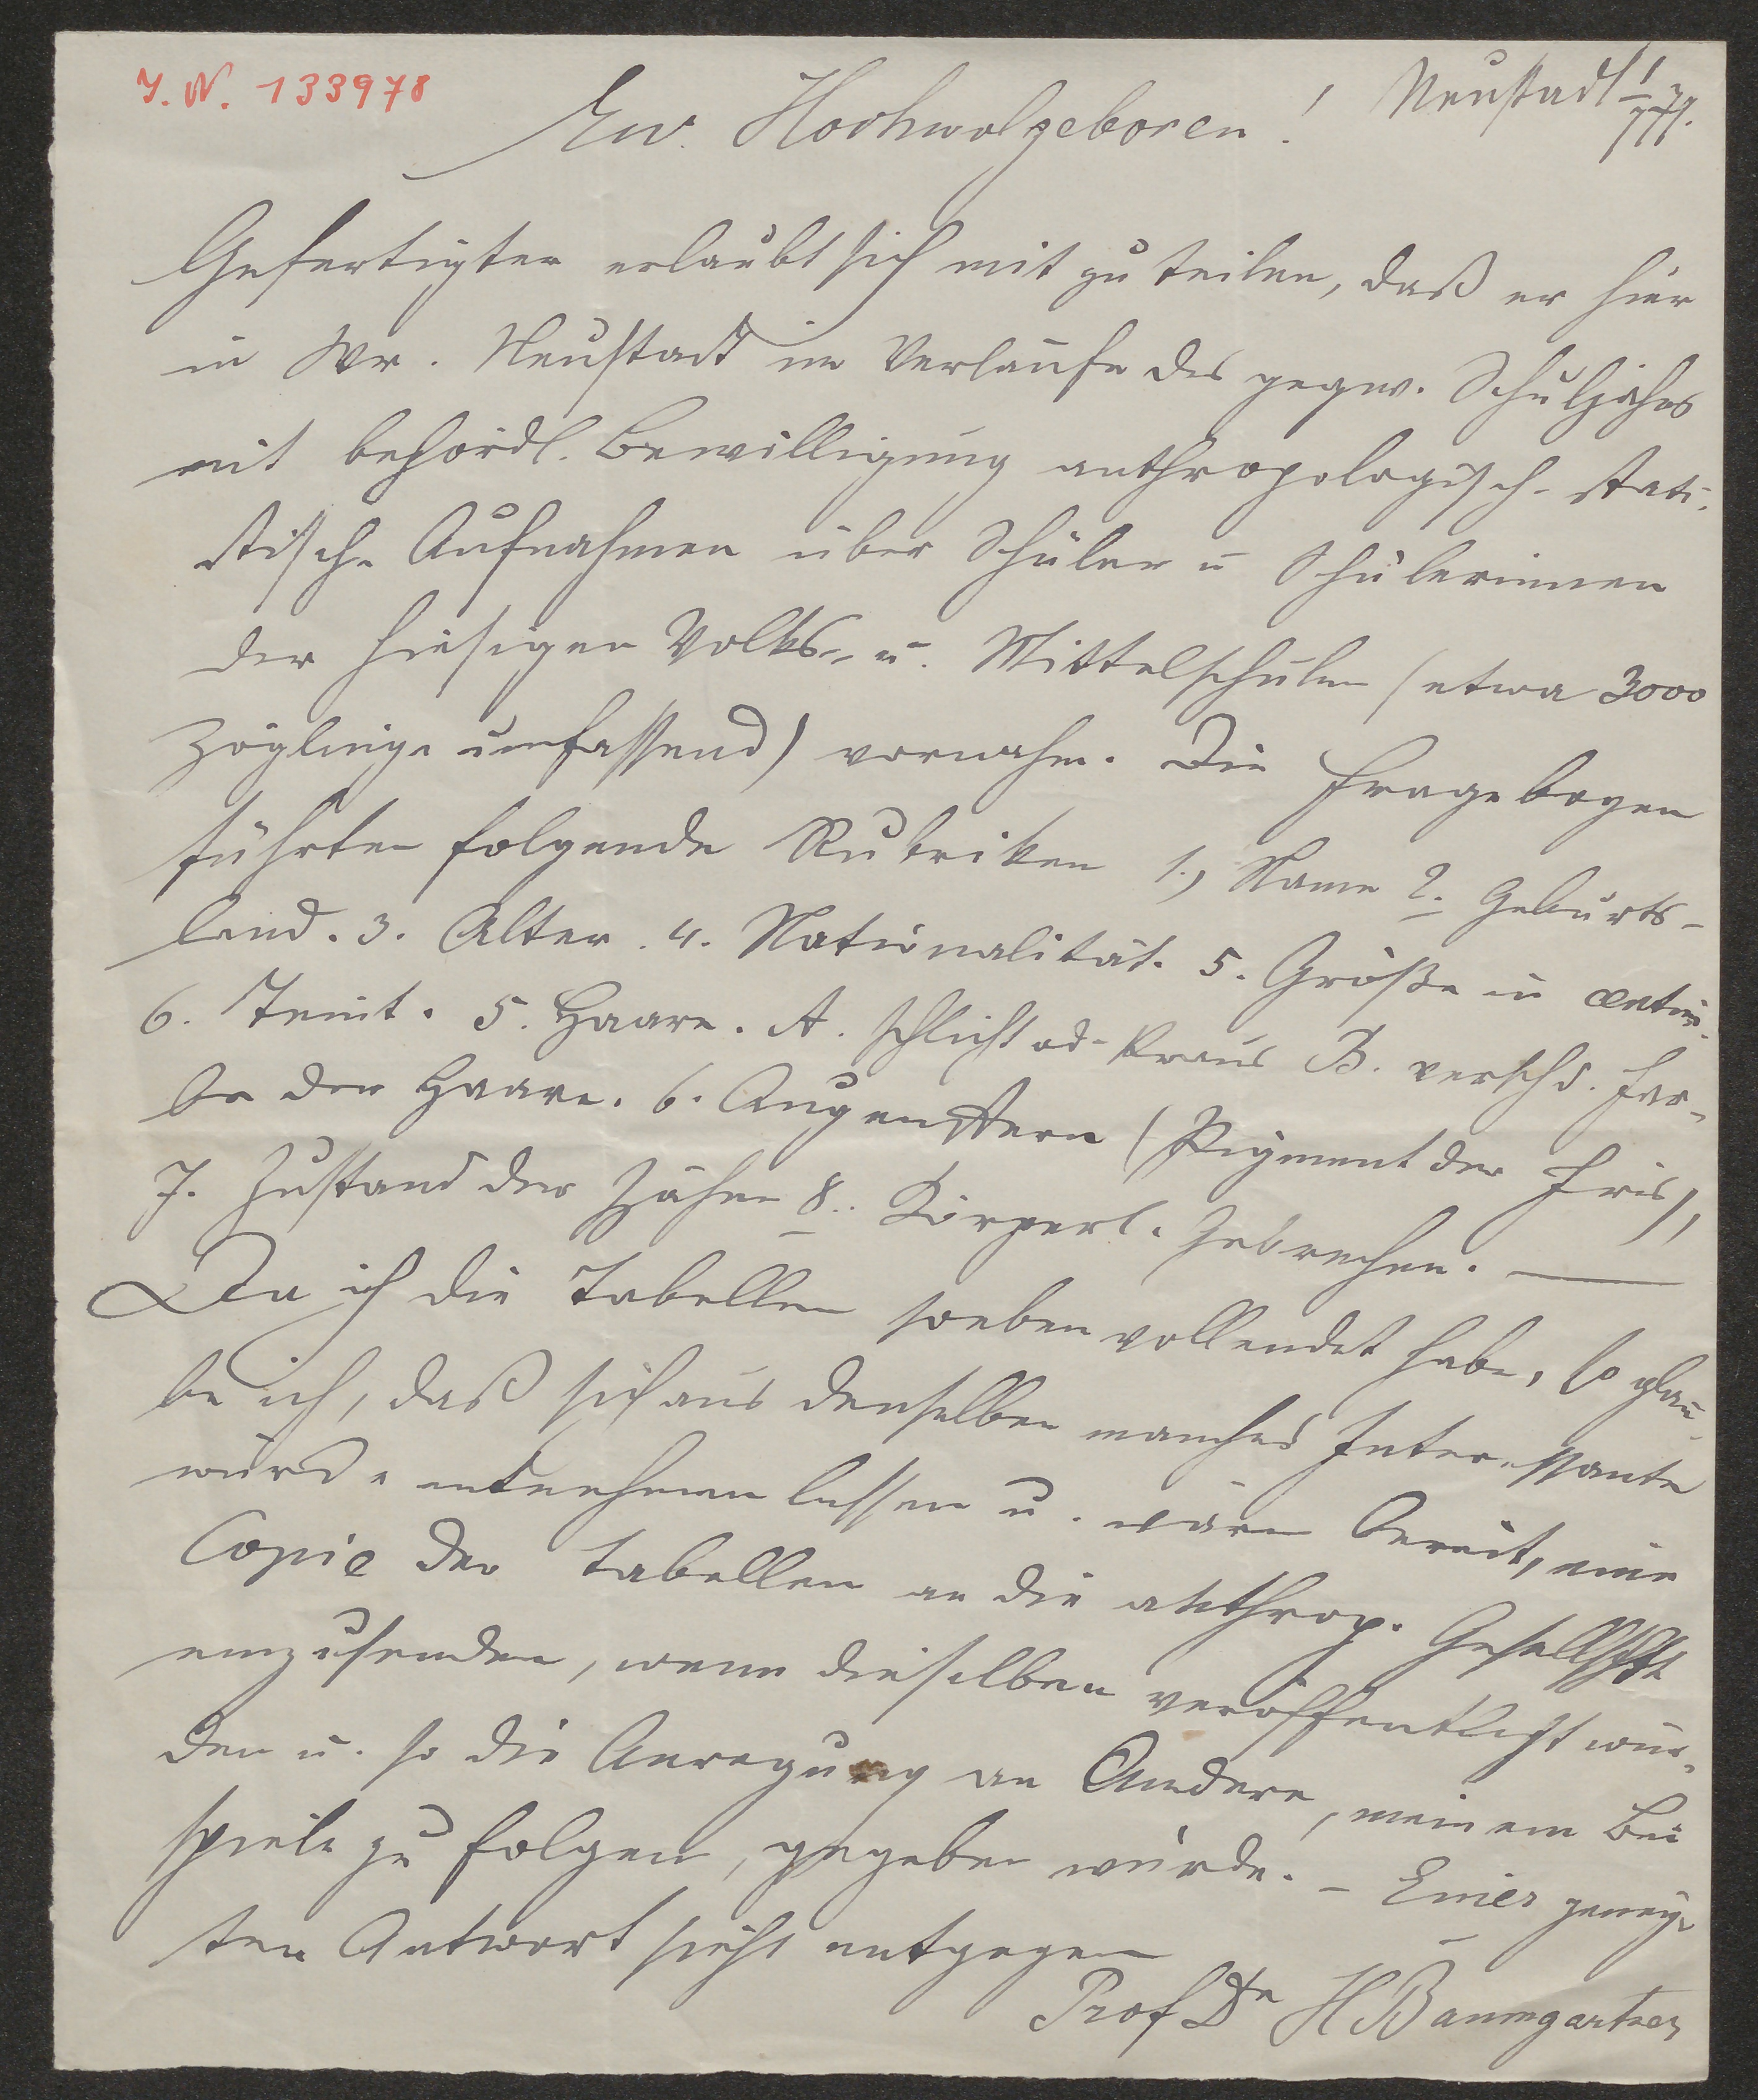 J. N. 133978
Neustadt 1/7 79.
Ew. Hochwolgeboren!
Gefertigter erlaubt sich mit zu teilen, daß er hier
in Wr. Neustadt im Verlaufe des gegw. Schuljahres
mit behördl. Bewilligung anthropologisch-stati-
stische Aufnahmen über Schüler u Schülerinnen
der hiesigen Volks- u. Mittelschulen (etwa 3000
Zöglinge umfassend) vornahm. Die Fragebogen
führten folgende Rubriken 1., Name 2. Geburts-
land. 3. Alter. 4. Nationalität. 5. Größe in
6. Teint. 5. Haare. A. schlicht od. kraus B. verschd. Far-
be der Haare. 6. Augenstern (Pigment der Iris),
7. Zustand der Zähne 8. Körperl. Gebrechen. —
Da ich die Tabellen soeben vollendet habe, so glau-
be ich, daß sich aus denselben manches Interessante
würde entnehmen lassen u. wäre bereit, eine
Copie der Tabellen an die anthrop. Gesellschft
einzusenden, wenn dieselben veröffentlicht wür-
den u. so die Anregung an Andere, meinem Bei
spiele zu folgen, gegeben würde. – Einer geneig-
ten Antwort sieht entgegen
Prof Dr H Baumgartner